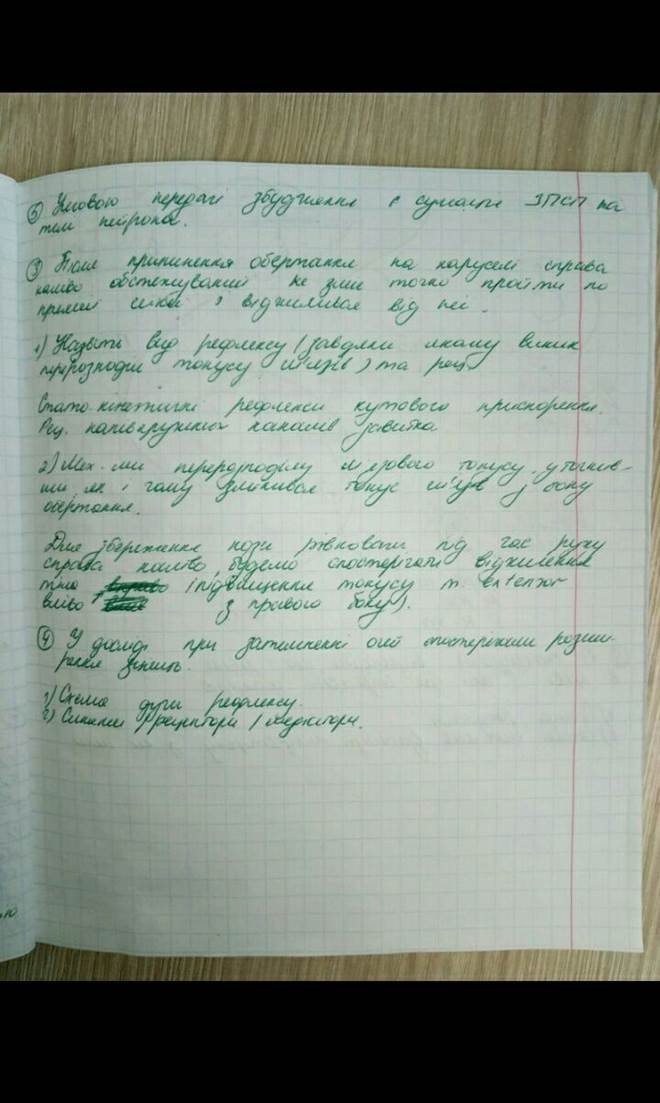 5) Умовою передачі збудження є сумація ЗПСП на
тілі нейрона.
3) Після припинення обертання на каруселі справа
наліво обстежуваний не зміг точно пройти по
прямій лінії і відхилився від неї.
1) Назвіть вид рефлексу (завдяки якому виник
перерозподіл тонусу м'язів) та рец.
Стато-кінетичні рефлекси кутового прискорення.
Рец. напівкружних каналів завитка
2) Мех-ми перерозподілу м'язового тонусу, уточнив-
ши, як і чому змінився тонус м'язів з боку
обертання.
Для збереження пози рівноваги під час руху
справа наліво, будемо спостерігати відхилення
тіла (підвищення тонусу m. extensor
вліво з правого боку).
4) У досліді при затемненні очей спостерігали розши-
рення зіниць.
1) Схема дуги рефлексу.
2) Синапси / рецептори / медіатори.